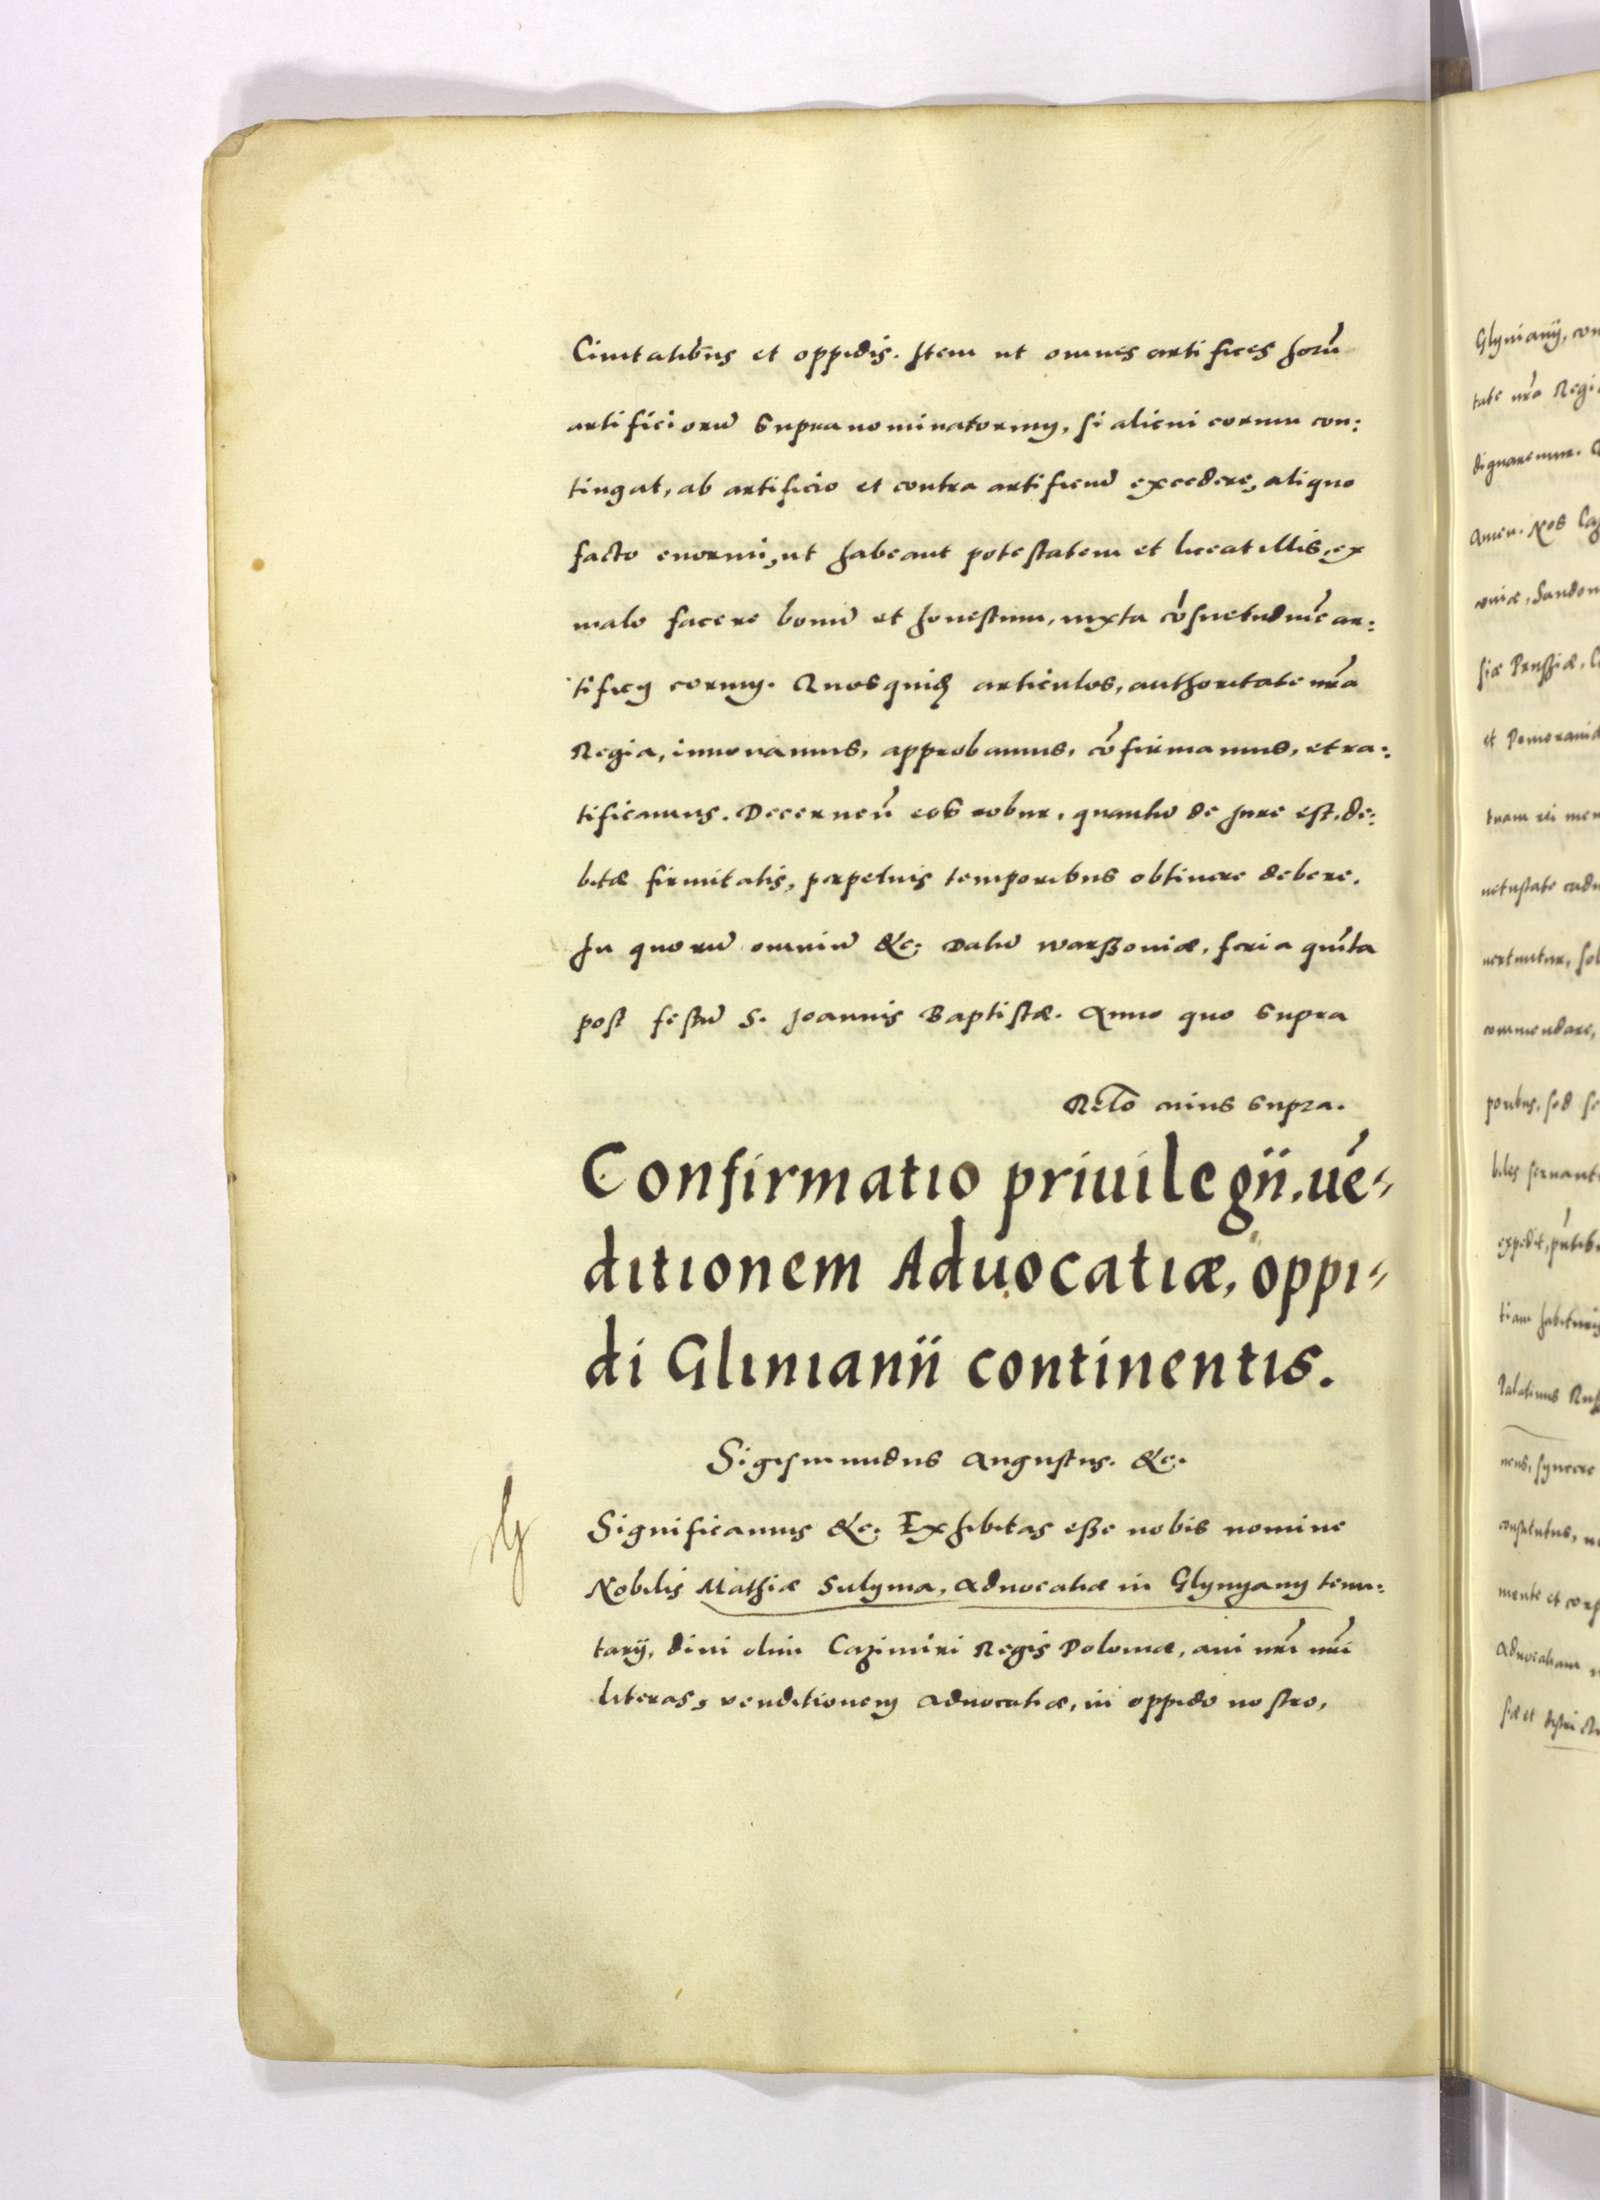 Ciuitatibus et oppidis. Item ut omnes artifices horū
artificiorū supranominatorum, si alicui eorum con:
tingat, ab artificio et contra artificiū excedere, aliquo
facto enormi, ut habeant potestatem et liceat illis, ex
malo facere bonū et honestum, iuxta cōsuetudinē ar:
tificij eorum. Quosquidē articulos, authoritate nrā
Regia, innouamus, approbamus, cōfirmamus, et ra:
tificamus. Decerneñ eos robur, quantū de Jure est, de:
bitæ firmitatis, perpetuis temporibus obtinere debere.
In quorū omniū &c. Datū Warssouiæ, feria quīta
post festū S. Joannis Baptistæ. Anno quo supra
Relō cuius supra.
Confirmatio priuilegii, uē-
ditionem Aduocatiæ, oppi-
di Glinianii continentis.
Sigismundus Augustus. &c.
Significamus &c. Exhibitas esse nobis nomine
Nobilis Mathiæ Sulyma, Aduocatiæ in Glynyany tenu:
tarij, diui olim Cazimiri Regis Poloniæ, aui nrī nrī
literas, venditionem Aduocatiæ, in oppido nostro,
Glynianij, con
tate nrā Regi
dignaremur.
Amen. Nos Caz
couiæ, Sandom
siæ Prussiæ,
et Pomeraniæ
tuam rei mem
uetustate
uertuntur,
commendare,
biles
expedit,
tiam habituris
Palatinus Rus
neus, syncere
constitutus,
mente et corp
Aduocatiam
siæ et